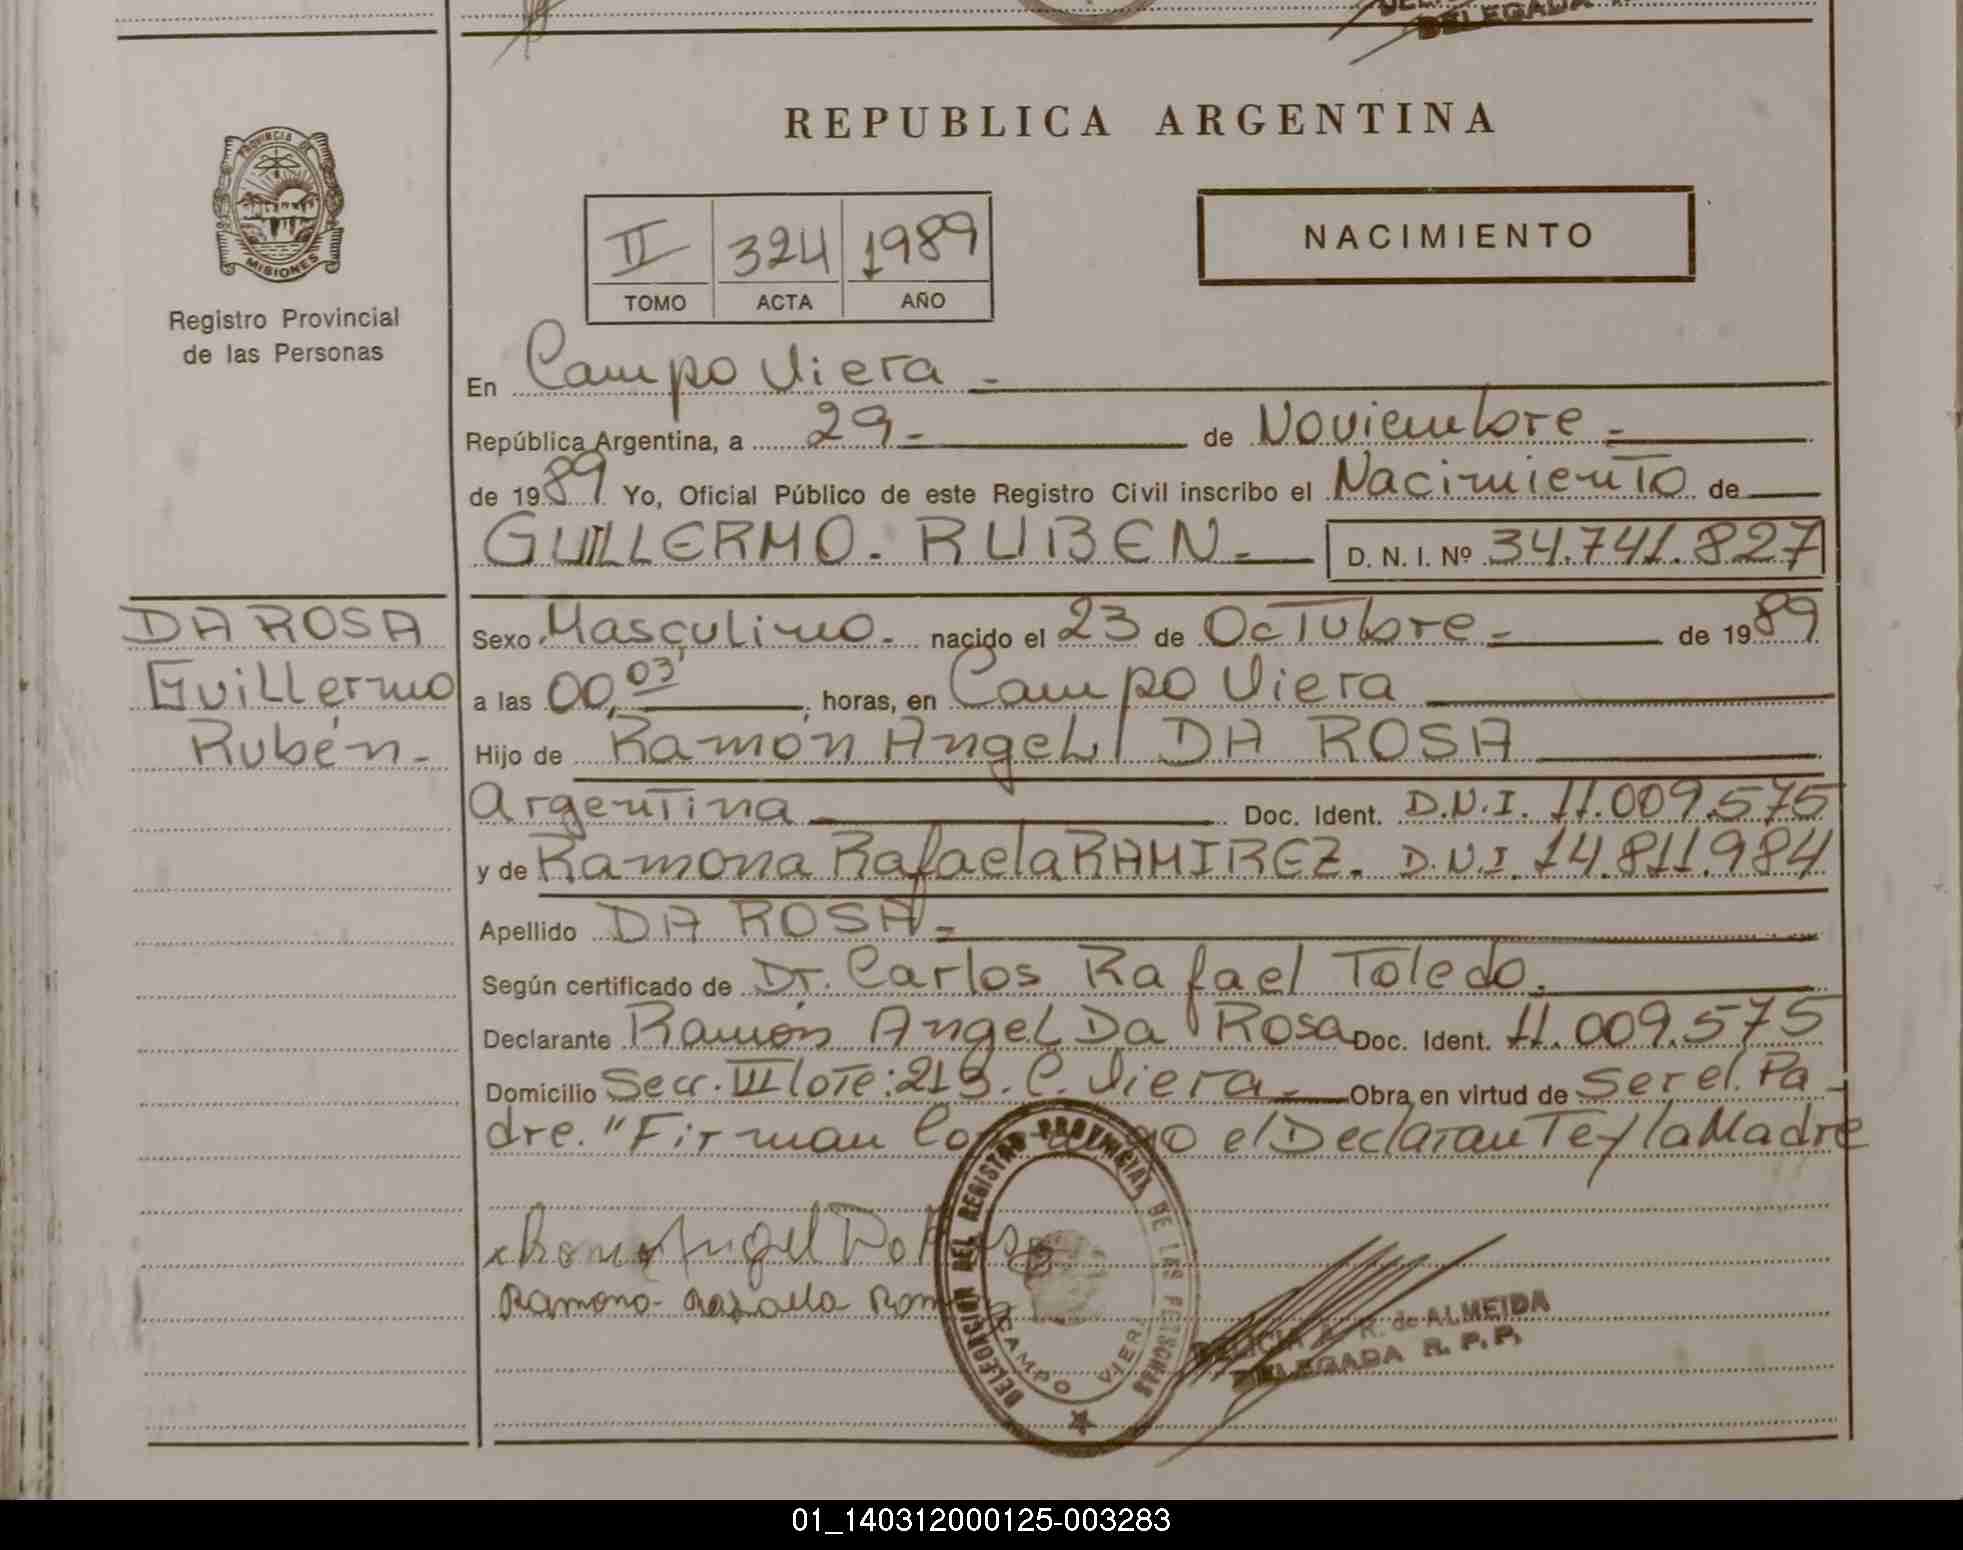 DELEGADA
REPUBLICA ARGENTINA
PROVINCIA DE
MISIONES
Registro Provincial
de las Personas
NACIMIENTO
II 324 1989
TOMO ACTA AÑO
En Campo Viera -
República Argentina, a 29 - de Noviembre -
de 1989 Yo, Oficial Público de este Registro Civil inscribo el Nacimiento de
GUILLERMO - RUBEN - D. N. I. Nº 34.741.827
DA ROSA
Guillermo
Rubén -
Sexo Masculino - nacido el 23 de Octubre - de 1989
a las 00,03' horas, en Campo Viera
Hijo de Ramón Angel DA ROSA
Argentina Doc. Ident. D.N.I. 11.009.575
y de Ramona Rafaela RAMIREZ. D.N.I. 14.811.984
Apellido DA ROSA -
Según certificado de Dr. Carlos Rafael Toledo.
Declarante Ramón Angel Da Rosa Doc. Ident. 11.009.575
Domicilio Secc. III lote: 213. C. Viera - Obra en virtud de Ser el Pa-
dre. "Firman el Declarante y la Madre
Angel Da
Ramona Rafaela
DELEGACION DEL REGISTRO PROVINCIAL DE LAS PERSONAS
CAMPO VIERA
R. de ALMEIDA
DELEGADA R. P. P.
01_140312000125-003283